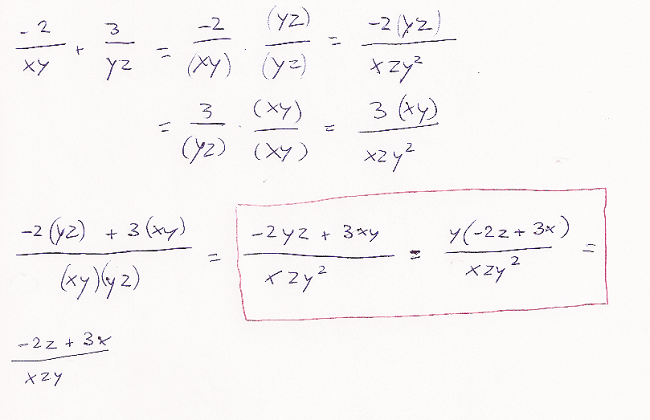 -2/xy + 3/yz = -2/(xy) · (yz)/(yz) = -2(yz)/xzy²
= 3/(yz) · (xy)/(xy) = 3(xy)/xzy²
-2(yz) + 3(xy)/(xy)(yz) = -2yz + 3xy/xzy² = y(-2z + 3x)/xzy² =
-2z + 3x/xzy